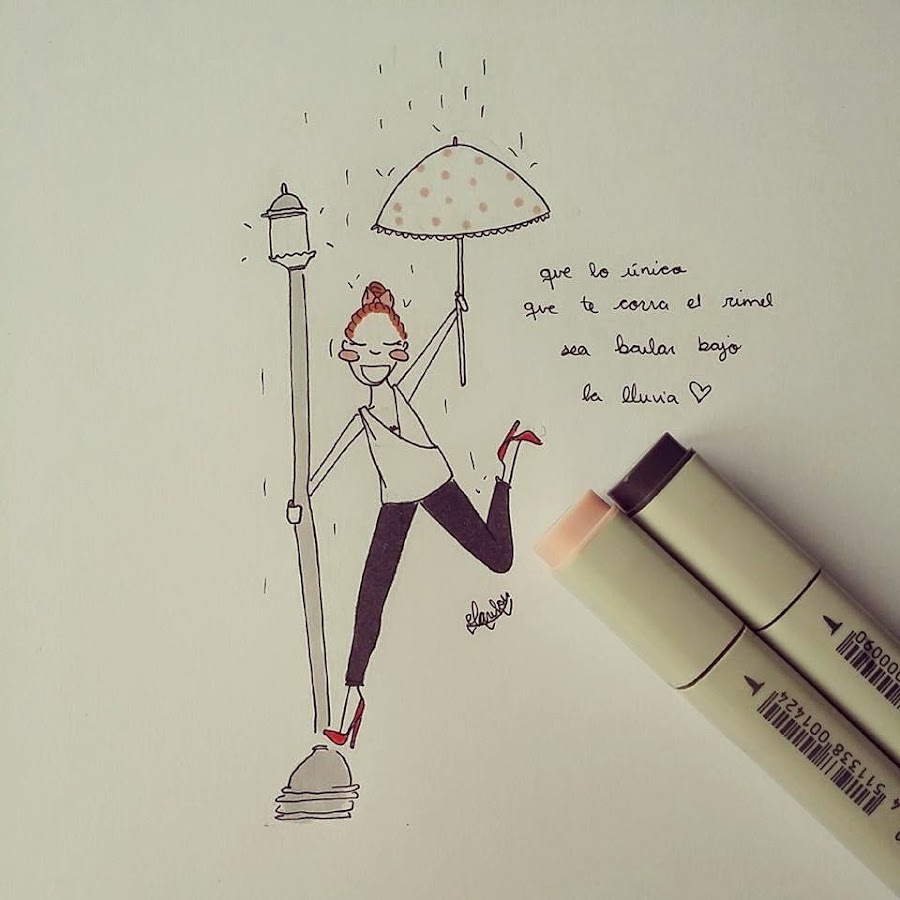 que lo único
que te corra el rimel
sea bailar bajo
la lluvia ♡
4 511338 001424
000090